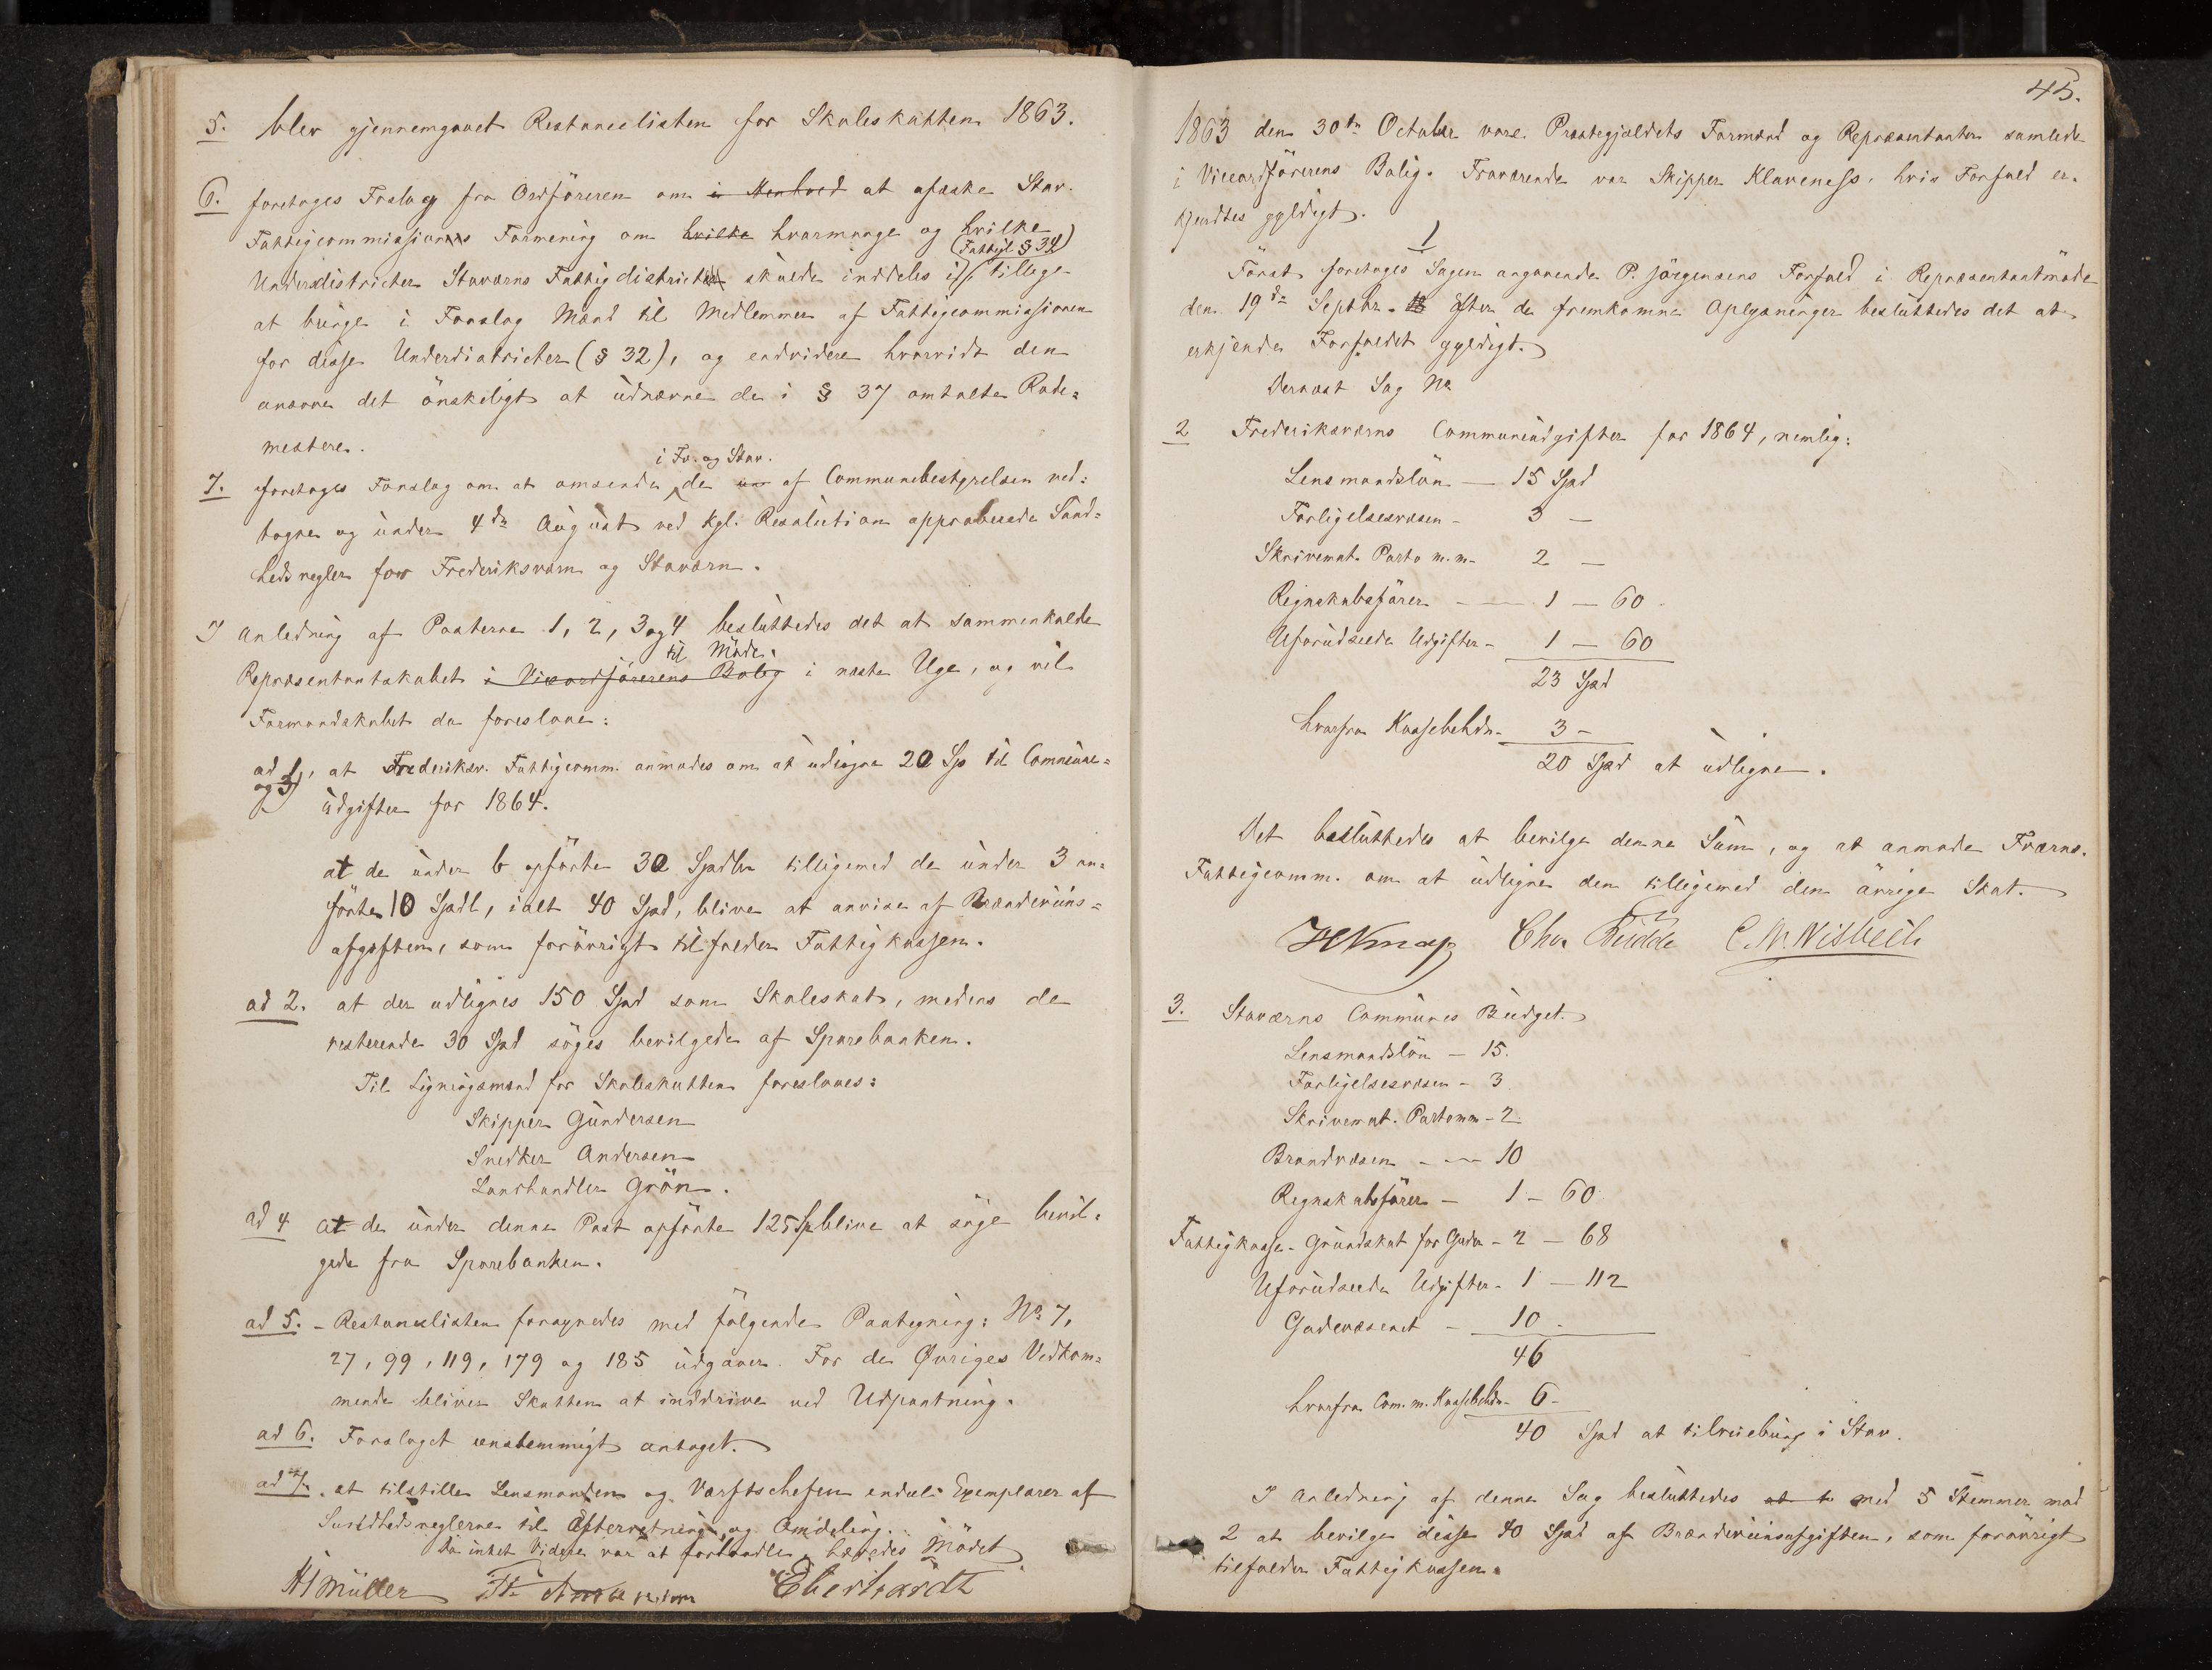 5. blev gjennemgaaet Restancelisten for Skoleskatten 1863.
6. foretoges Forslag fra Ordföreren om i Henhold at afæske Stav.
Fattigcommissions Formening om hvilke hvormange og hvilke
(Fattigl. § 34)
Underdistricter Staværns Fattigdistrict skulde inddeles i, tillige
at bringe i Forslag Mænd til Medlemmer af Fattigcommissionen
for disse Underdistricter (§ 32), og endvidere hvorvidt den
ansaae det önskeligt at udnævne de i § 37 omtalte Rode=
mestere.
i Fv. og Stav.
7. foretoges Forslag om at omsende de af Communebestyrelsen ved=
tagne og under 4de August ved Kgl. Resolution approberede Sund=
hedsregler for Frederiksværn og Staværn.
I Anledning af Posterne 1, 2, 3 og 4 besluttedes det at sammenkalde
til Möde
Repræsentantskabet i Viceordförerens Bolig i næste Uge, og vil
Formandskabet da foreslaae:
ad 1, at Frederiksv. Fattigcomm. anmodes om at udligne 20 Sp til Commune=
og 3) udgifter for 1864.
at de under b opförte 30 Spdlr tilligemed de under 3 an=
förte 10 Spdl, ialt 40 Spd, blive at anvise af Brændeviins=
afgiften, som forövrigt tilfalder Fattigkassen.
ad 2. at der udlignes 150 Spd som Skoleskat, medens de
resterende 30 Spd söges bevilgede af Sparebanken.
Til Ligningsmænd for Skoleskatten foreslaaes:
Skipper Gundersen
Snedker Andersen
Landhandler Grön.
ad 4 at de under denne Post opförte 125 Sp blive at söge bevil=
gede fra Sparebanken.
ad 5. - Restancelisten forsynedes med fölgende Paategning: No 7,
27, 99, 119, 179 og 185 udgaaer. For de Øvriges Vedkom=
mende bliver Skatten at inddrive ved Udpantning.
ad 6. Forslaget eenstemmigt antaget.
ad 7. at tilstille Lensmanden og Værftschefen endeel Exemplarer af
Sundhedsreglerne til Efterretning og Omdeling.
Da intet Videre var at forhandle, hævedes Mödet
Müller Eberhardt
45.
1863 den 30te October vare Præstegjældets Formænd og Repræsentanter samlede
i Viceordförerens Bolig. Fraværende var Skipper Klaveness, hvis Forfald er=
kjendtes gyldigt.
1
Först foretoges Sagen angaaende P. Jörgensens Forfald i Repræsentantmöde
den 19de Septbr. Efter de fremkomne Oplysninger besluttedes det at
erkjende Forfaldet gyldigt.
Dernæst Sag No
2 Frederiksværns Communeudgifter for 1864, nemlig:
Lensmandslön — 15 Spd
Forligelsesvæsen - 3 —
Skrivemat. Porto m.m. 2 —
Regnskabsförer — 1 — 60
Uforudseede Udgifter - 1 — 60
23 Spd
hvorfra Kassebehdn. 3 -
20 Spd at udligne.
Det besluttedes at bevilge denne Sum, og at anmode Fværns.
Fattigcomm. om at udligne den tilligemed den övrige Skat.
Chr. Budde C. N. Nisbeth
3. Staværns Communes Budget.
Lensmandslön — 15.
Forligelsesvæsen - 3
Skrivemat. Porto mm - 2
Brandvæsen - — 10
Regnskabsförer — 1 - 60
Fattigkasse - Grundskat for Gader - 2 — 68
Uforudseede Udgifter - 1 — 112
Gadevæsenet - 10 -
46
hvorfra Com. m. Kassebehdn. 6 -
40 Spd at tilveiebring i Stav.
I Anledning af denne Sag besluttedes at med 5 Stemmer mod
2 at bevilge disse 40 Spd af Brændeviinsafgiften, som forövrigt
tilfalder Fattigkassen.